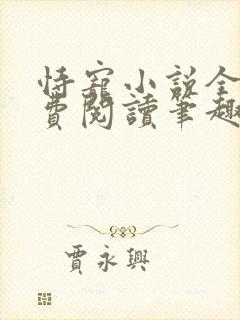 恃寵小説全
費閱讀筆趣
賈永興